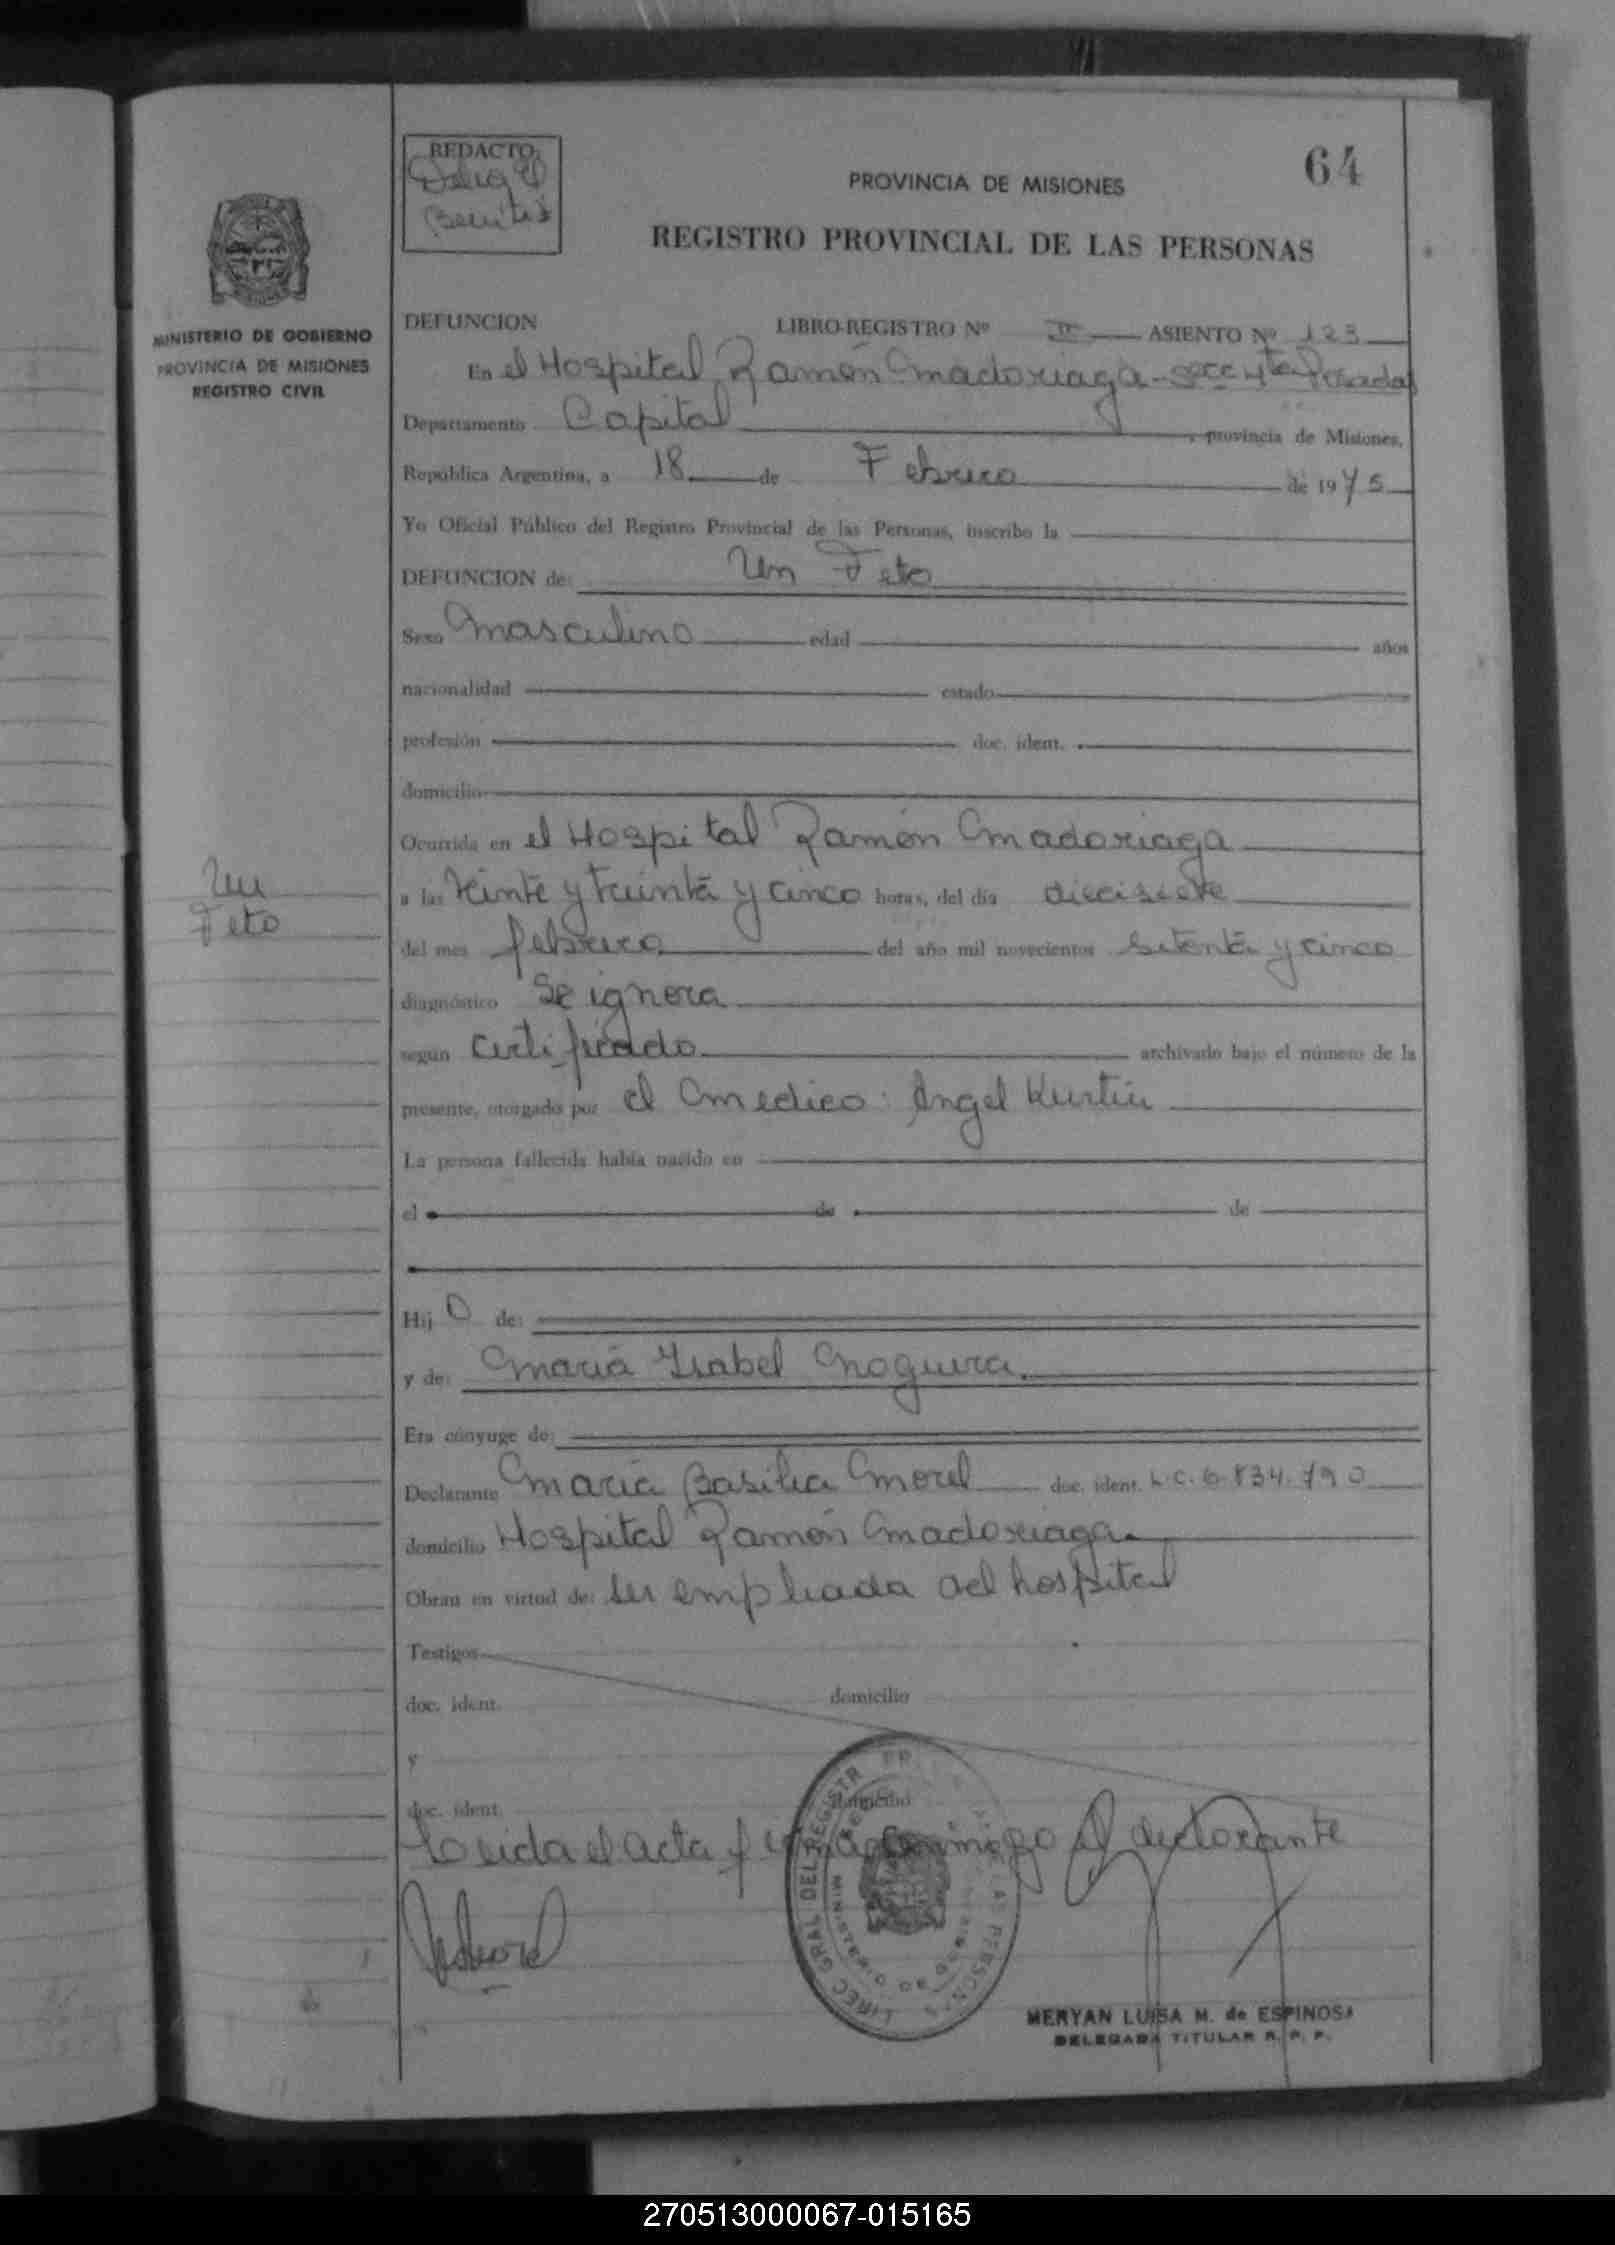 REDACTO:
Benitez
64
PROVINCIA DE MISIONES
REGISTRO PROVINCIAL DE LAS PERSONAS
MINISTERIO DE GOBIERNO
PROVINCIA DE MISIONES
REGISTRO CIVIL
DEFUNCION LIBRO-REGISTRO Nº II ASIENTO Nº 123
En el Hospital Ramón Madariaga - secc 4ta Posadas
Departamento Capital, provincia de Misiones,
República Argentina, a 18 de Febrero de 1975
Yo Oficial Público del Registro Provincial de las Personas, inscribo la
DEFUNCION de: Un Feto
Sexo Masculino edad años
nacionalidad estado
profesión doc. ident.
domicilio
Ocurrida en el Hospital Ramón Madariaga
Un
Feto
a las Veinte y treinta y cinco horas, del día diecisiete
del mes febrero del año mil novecientos setenta y cinco
diagnóstico Se ignora
según certificado archivado bajo el número de la
presente, otorgado por el medico: Angel
La persona fallecida había nacido en
el de de
Hij o de:
y de: Maria Isabel Noguera
Era cónyuge de:
Declarante Maria Basilia Morel doc. ident. L.C. 6.834.790
domicilio Hospital Ramón Madariaga
Obran en virtud de: ser empleada del hospital
Testigos
doc. ident. domicilio
y
doc. ident. domicilio
Leida el acta firma conmigo el declarante
MERYAN LUISA M. de ESPINOSA
DELEGADA TITULAR R. P. P.
270513000067-015165